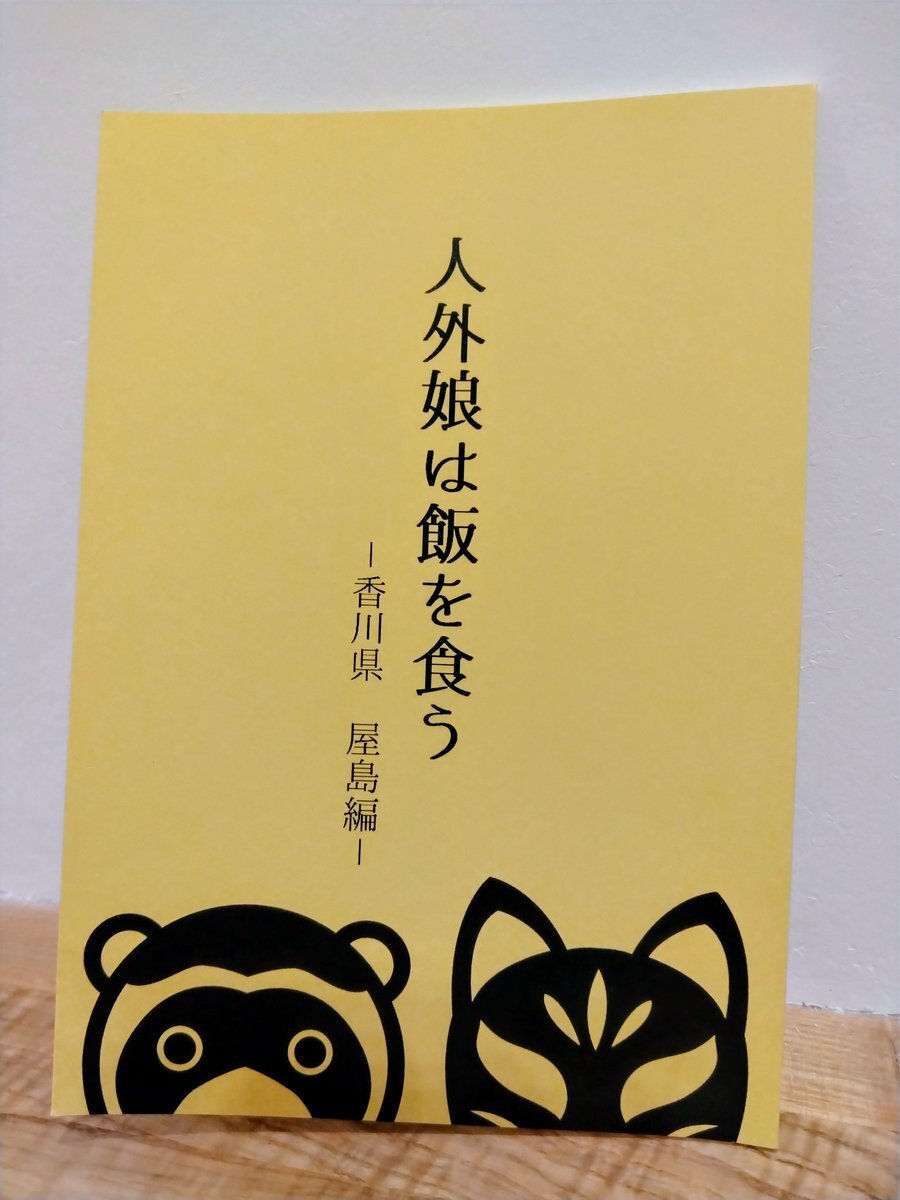 人外娘は飯を食う
ー香川県　屋島編ー